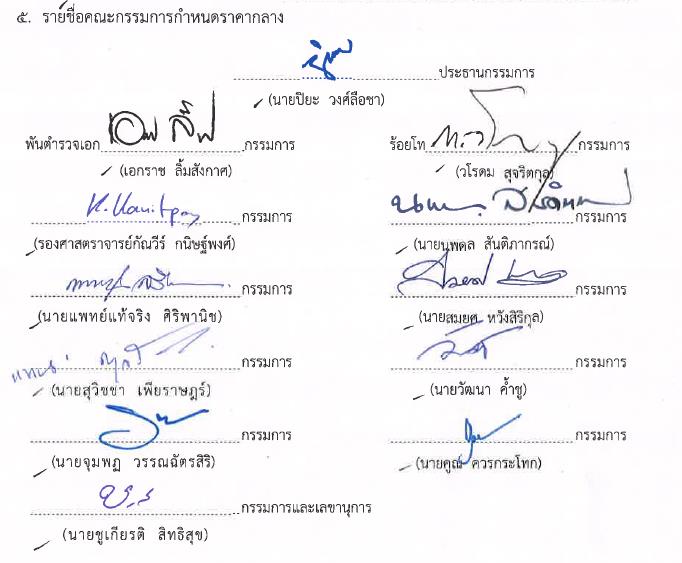 ๕. รายชื่อคณะกรรมการกำหนดราคากลาง
ประธานกรรมการ
(นายปิยะ วงศ์ลือชา)
พันตำรวจเอก กรรมการ ร้อยโท กรรมการ
(เอกราช ลิ้มสังกาศ) (วโรดม สุจริตกุล)
กรรมการ กรรมการ
(รองศาสตราจารย์กัณวีร์ กนิษฐ์พงศ์) (นายนพดล สันติภากรณ์)
กรรมการ กรรมการ
(นายแพทย์แท้จริง ศิริพานิช) (นายสมยศ หวังสิริกุล)
กรรมการ กรรมการ
(นายสุวิชชา เพียราษฎร์) (นายวัฒนา ค้ำชู)
กรรมการ กรรมการ
(นายจุมพฏ วรรณฉัตรสิริ) (นายคูณ ควรกระโทก)
กรรมการและเลขานุการ
(นายชูเกียรติ สิทธิสุข)